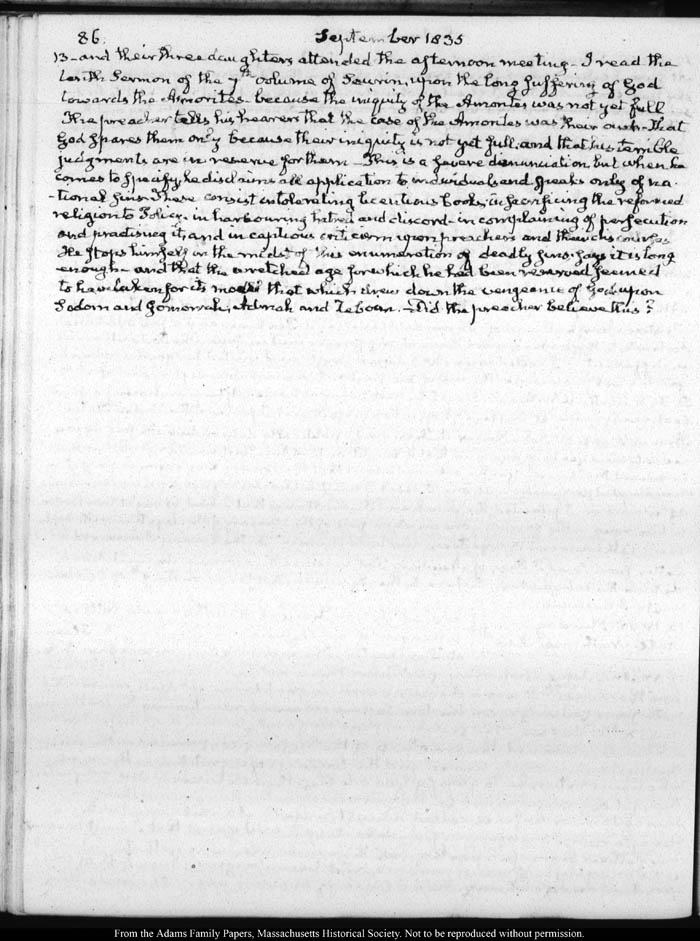 86.
September 1835
13 - and their three daughters attended the afternoon meeting - I read the
tenth Sermon of the 7th volume of Saurin, upon the long suffering of God
towards the Amorites - because the iniquity of the Amorites was not yet full
The preacher tells his hearers that the case of the Amorites was their own - That
God spares them only because their iniquity is not yet full, and that his terrible
judgments are in reserve for them - This is a severe denunciation but when he
comes to specify, he disclaims all application to individuals and speaks only of na-
-tional sins. These consist in tolerating licentious books, in sacrificing the reformed
religion to Policy - in harbouring hatred and discord - in complaining of persecution
and practising it, and in captious criticism upon preachers and their discourses
He stops himself in the midst of this enumeration of deadly sins - says it is long
enough - and that the wretched age for which he had been reserved seemed
to have taken for its model that which drew down the vengeance of God upon
Sodom and Gomorrah, Admah and Zeboim. - Did the preacher believe this?
From the Adams Family Papers, Massachusetts Historical Society. Not to be reproduced without permission.